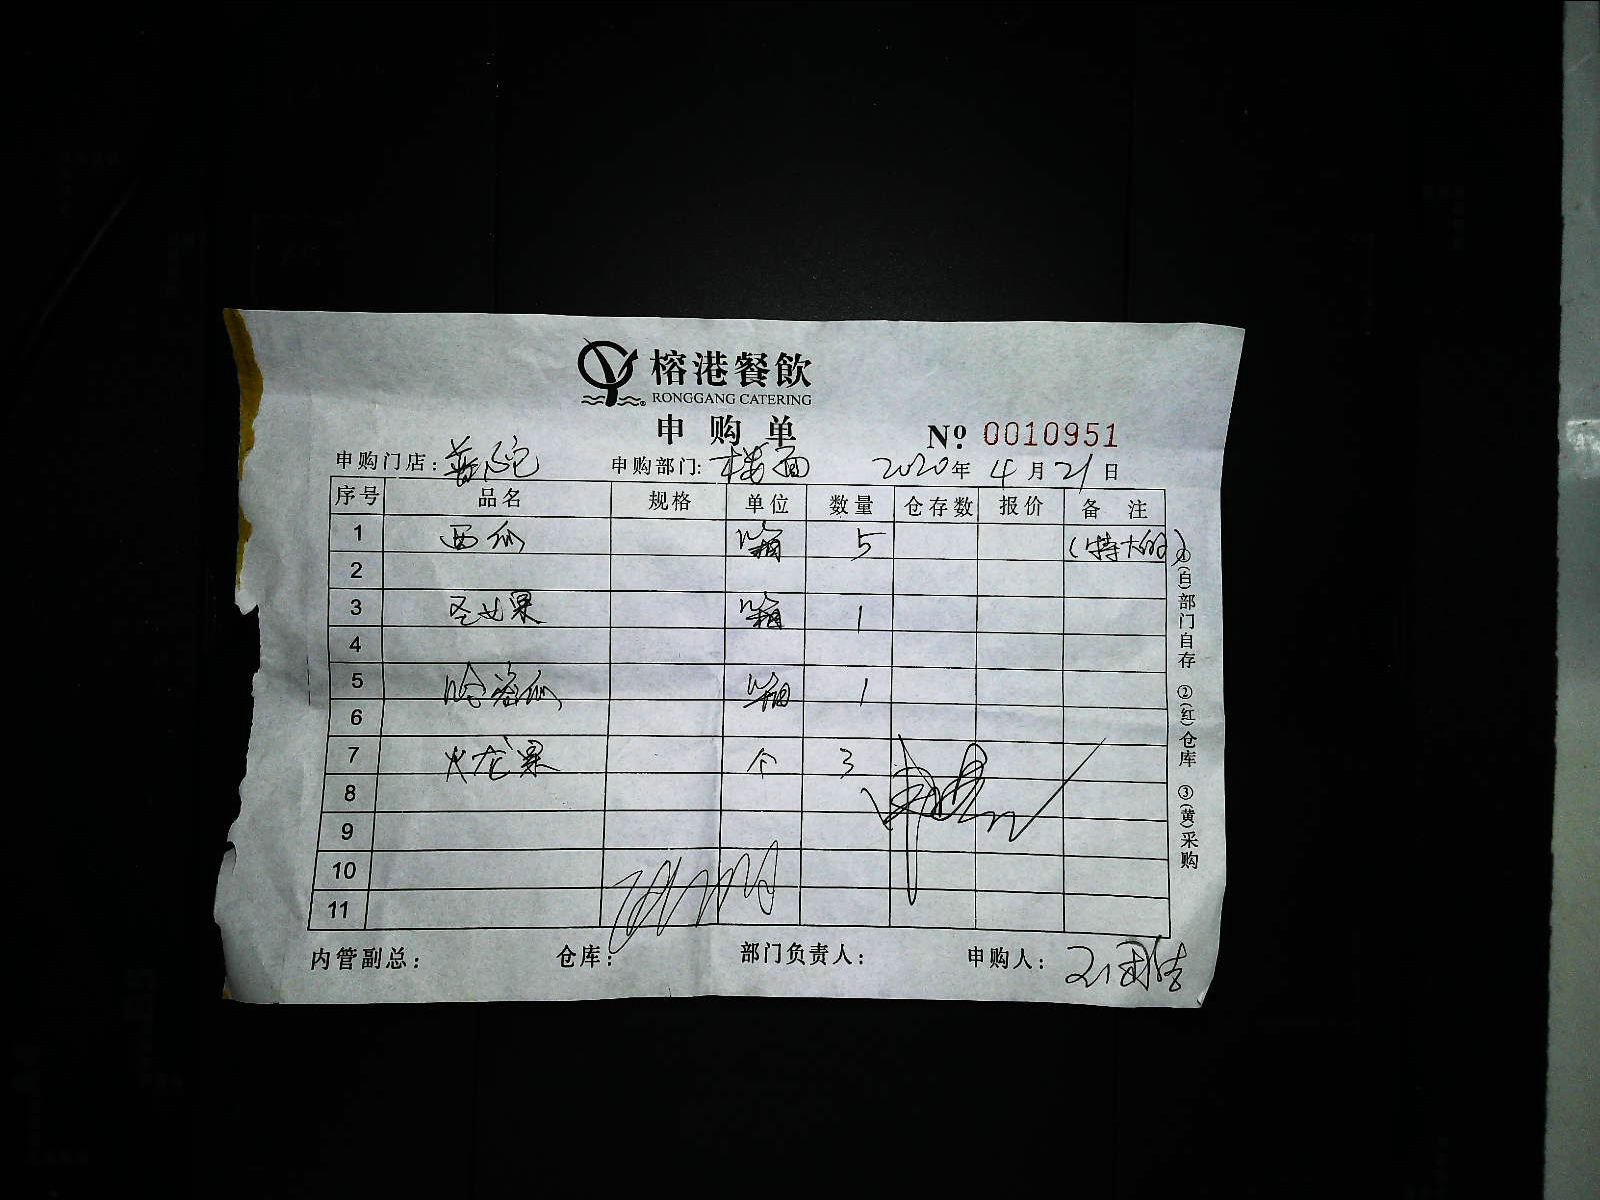 榕港餐飲
RONGGANG CATERING
申购单
№ 0010951
申购门店：普陀 申购部门：楼面 2020年4月21日
序号 品名 规格 单位 数量 仓存数 报价 备注
1 西瓜 箱 5 (特大的)
2
3 圣女果 箱 1
4
5 哈密瓜 箱 1
6
7 火龙果 个 3
8
9
10
11
①(白)部门自存 ②(红)仓库 ③(黄)采购
内管副总： 仓库： 部门负责人： 申购人：